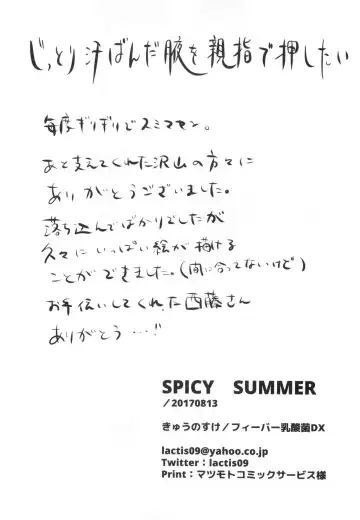 じっとり汗ばんだ腋を親指で押したい
毎度ギリギリでスミマセン。
あと支えてくれた沢山の方々に
ありがとうございました。
落ち込んでばかりでしたが
久々にいっぱい絵が描ける
ことができました。(間に合ってないけど)
お手伝いしてくれた西藤さん
ありがとう…!
SPICY SUMMER
／20170813
きゅうのすけ／フィーバー乳酸菌DX
lactis09@yahoo.co.jp
Twitter：lactis09
Print：マツモトコミックサービス様